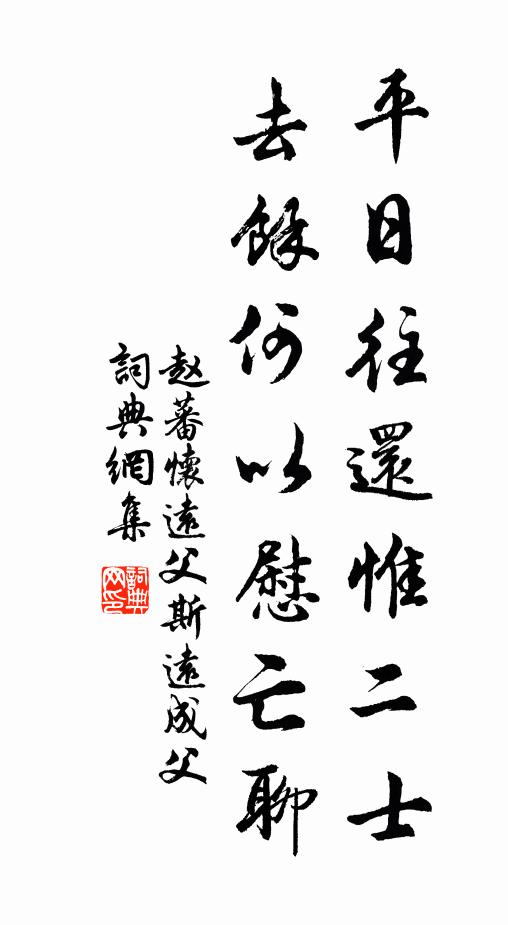 平日往還惟二士
去餘何以慰亡聊
赵蕃懷遠父斯遠成父
詞典網集
詞典網印